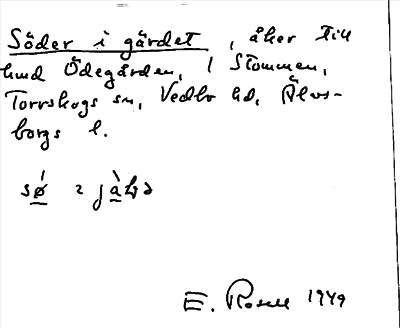 Söder i gärdet, åker till
hmd Ödegården, 1 Stommen,
Torrskogs sn, Vedbo hd, Älvs-
borgs l.
E. Rosell 1949